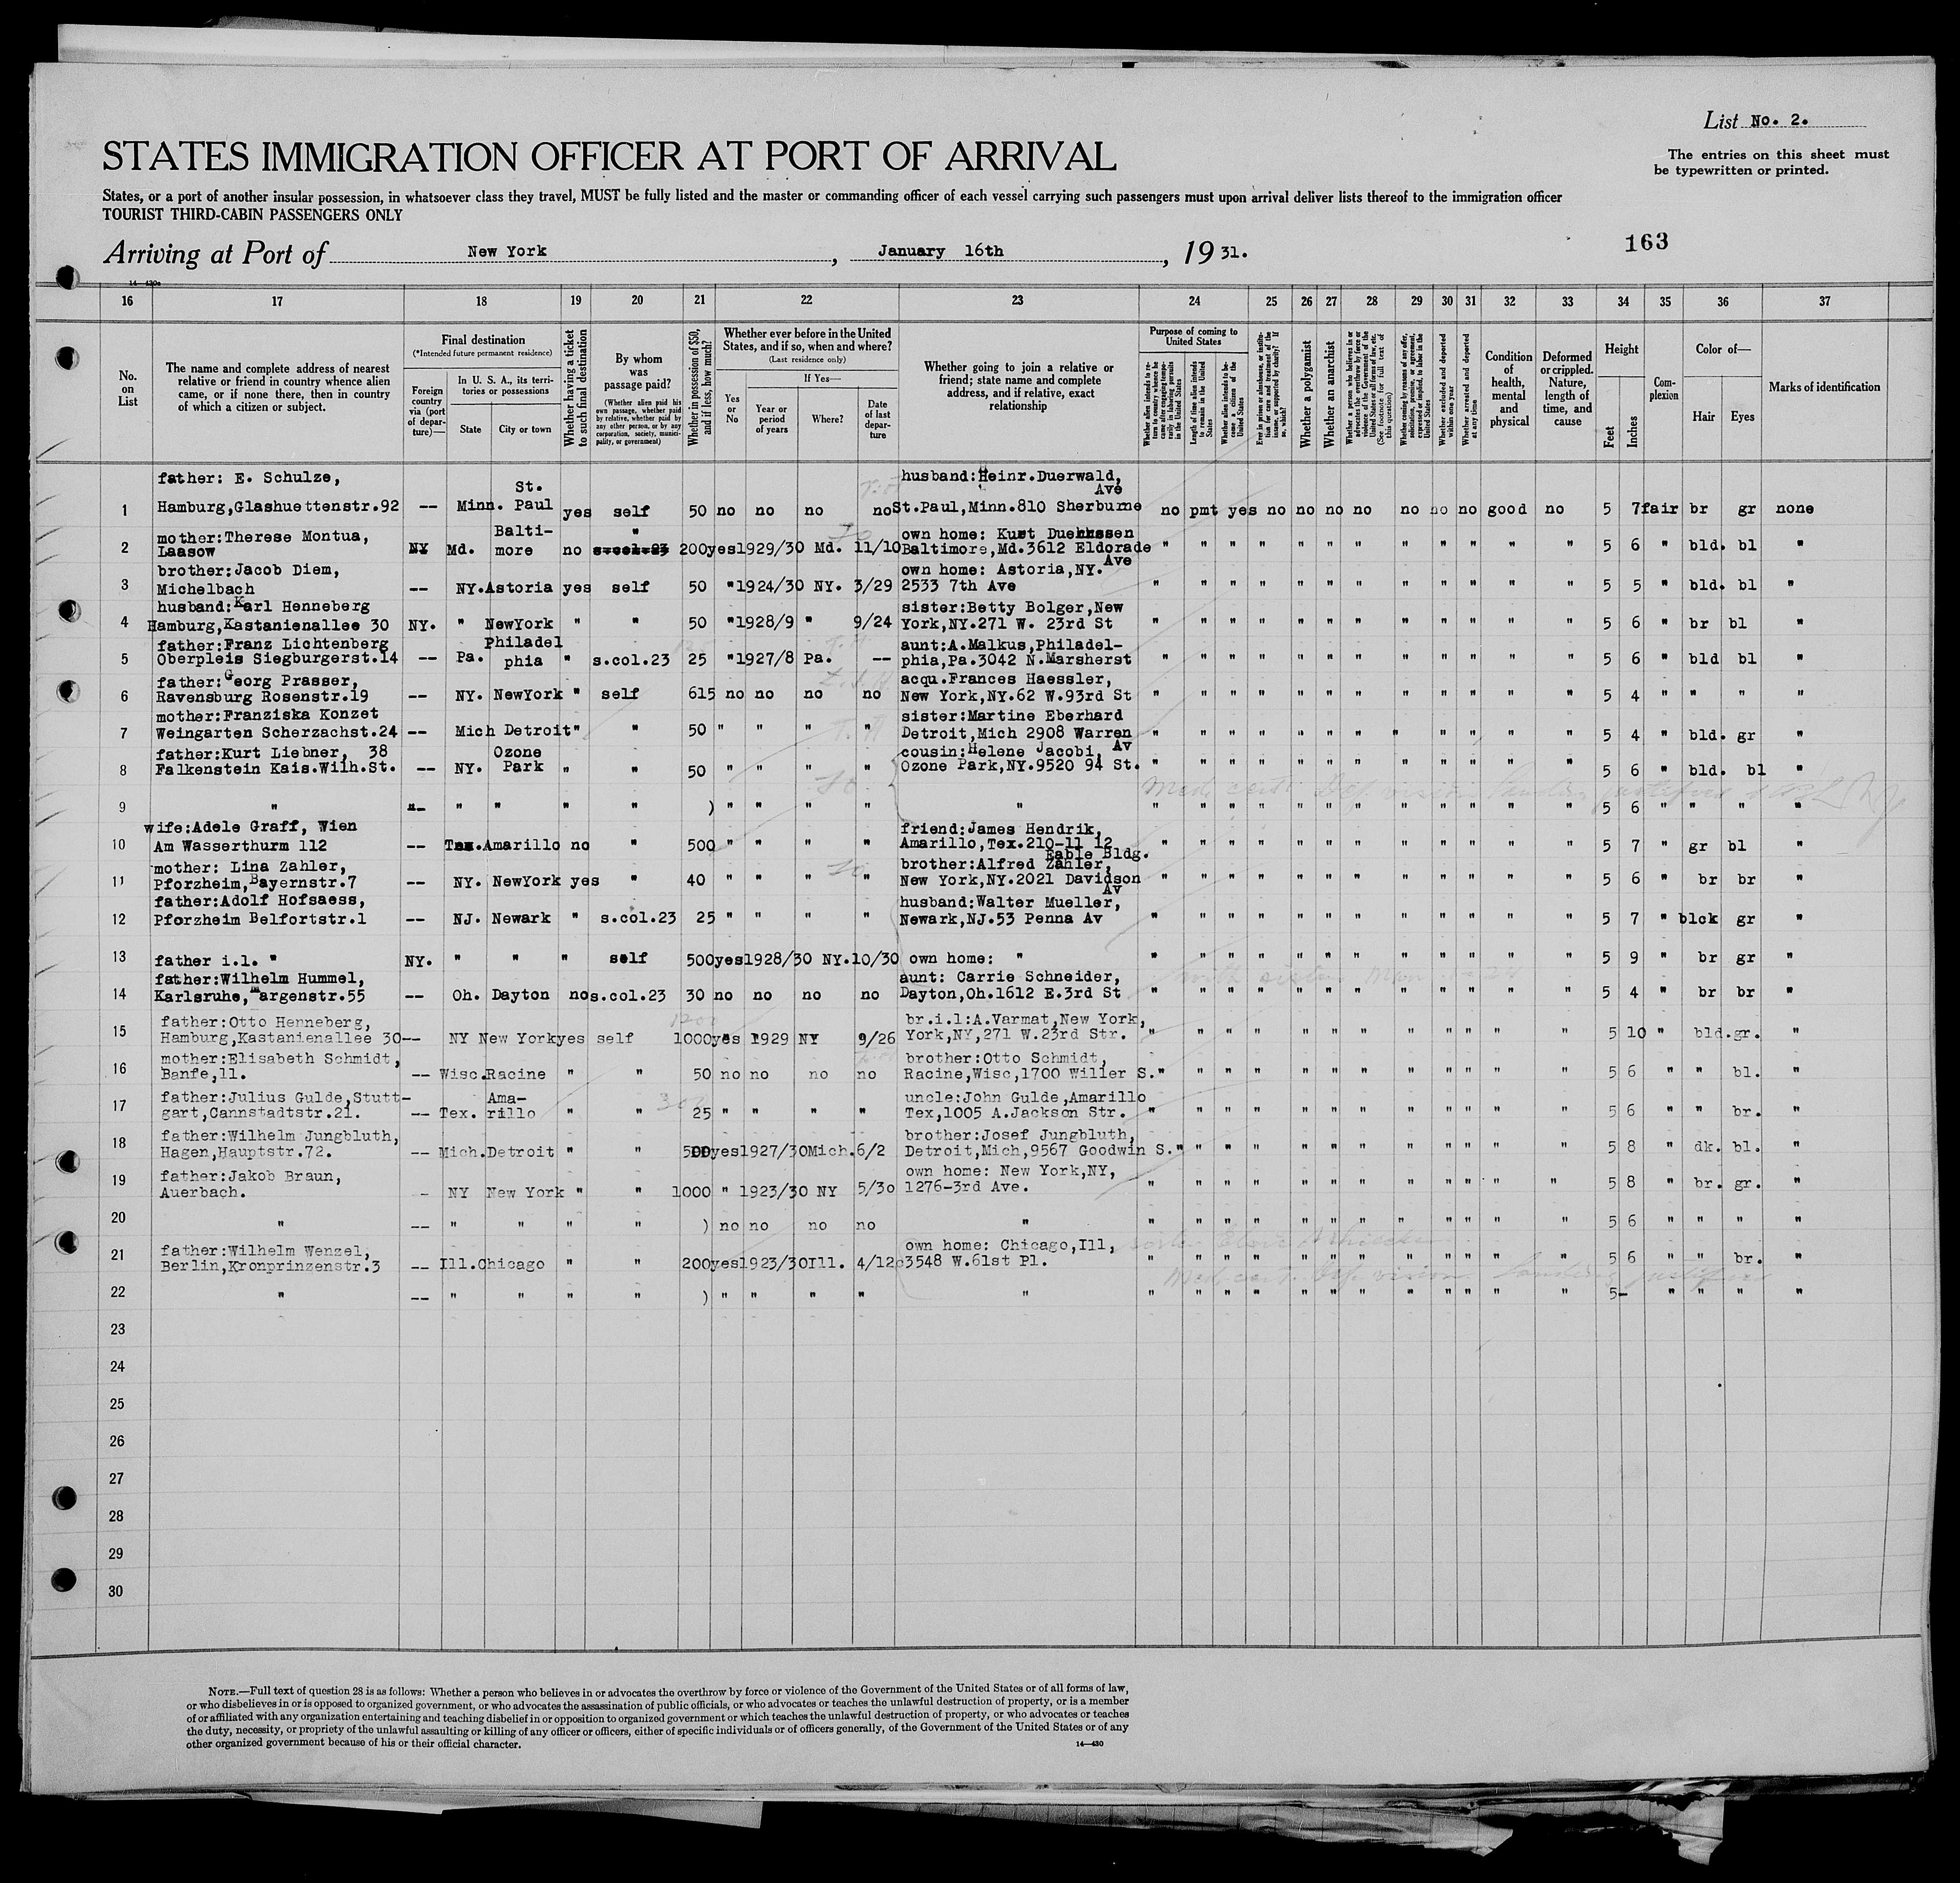 List No. 2.
STATES IMMIGRATION OFFICER AT PORT OF ARRIVAL
The entries on this sheet must
be typewritten or printed.
States, or a port of another insular possession, in whatsoever class they travel, MUST be fully listed and the master or commanding officer of each vessel carrying such passengers must upon arrival deliver lists thereof to the immigration officer
TOURIST THIRD-CABIN PASSENGERS ONLY
Arriving at Port of New York, January 16th, 19 31.
163
16 17 18 19 20 21 22 23 24 25 26 27 28 29 30 31 32 33 34 35 36 37
No. on List
The name and complete address of nearest relative or friend in country whence alien came, or if none there, then in country of which a citizen or subject.
Final destination
(*Intended future permanent residence)
Foreign country via (port of departure)—
In U. S. A., its territories or possessions
State
City or town
Whether having a ticket to such final destination
By whom was passage paid?
(Whether alien paid his own passage, whether paid by relative, whether paid by any other person, or by any corporation, society, municipality, or government)
Whether in possession of $50, and if less, how much?
Whether ever before in the United States, and if so, when and where?
(Last residence only)
Yes or No
If Yes—
Year or period of years
Where?
Date of last departure
Whether going to join a relative or friend; state name and complete address, and if relative, exact relationship
Purpose of coming to United States
Whether alien intends to return to country whence he came after engaging temporarily in laboring pursuits in the United States
Length of time alien intends to remain in the United States
Whether alien intends to become a citizen of the United States
Ever in prison or almshouse, or institution for care and treatment of the insane, or supported by charity? If so, which?
Whether a polygamist
Whether an anarchist
Whether a person who believes in or advocates the overthrow by force or violence of the Government of the United States or all forms of law, etc. (See footnote for full text of this question)
Whether coming by reasons of any offer, solicitation, promise, or agreement, expressed or implied, to labor in the United States
Whether excluded and deported within one year
Whether arrested and deported at any time
Condition of health, mental and physical
Deformed or crippled. Nature, length of time, and cause
Height
Feet
Inches
Complexion
Color of—
Hair
Eyes
Marks of identification
father: E. Schulze, St. husband:Heinr.Duerwald, Ave
1 Hamburg,Glashuettenstr.92 -- Minn. Paul yes self 50 no no no no St.Paul,Minn.810 Sherburne no pmt yes no no no no no no no good no 5 7 fair br gr none
mother:Therese Montua, Balti- " own home: Kurt
2 Laasow NY Md. more no s.col.23 200 yes 1929/30 Md. 11/10 Baltimore,Md.3612 Eldorade Ave " " " " " " " " " " " " 5 6 " bld. bl "
brother:Jacob Diem, own home: Astoria,NY.
3 Michelbach -- NY. Astoria yes self 50 " 1924/30 NY. 3/29 2533 7th Ave " " " " " " " " " " " " 5 5 " bld. bl "
husband:Karl Henneberg sister:Betty Bolger,New
4 Hamburg,Kastanienallee 30 NY. " NewYork " " 50 " 1928/9 " 9/24 York,NY.271 W. 23rd St " " " " " " " " " " " " 5 6 " br bl "
father:Franz Lichtenberg Philadel aunt:A.Malkus,Philadel-
5 Oberpleis Siegburgerst.14 -- Pa. phia " s.col.23 25 " 1927/8 Pa. -- phia,Pa.3042 N.Marsherst " " " " " " " " " " " " 5 6 " bld bl "
father:Georg Prasser, acqu.Frances Haessler,
6 Ravensburg Rosenstr.19 -- NY. NewYork " self 615 no no no no New York,NY.62 W.93rd St " " " " " " " " " " " " 5 4 " " " "
mother:Franziska Konzet sister:Martine Eberhard
7 Weingarten Scherzachst.24 -- Mich Detroit " " 50 " " " " Detroit,Mich 2908 Warren Av " " " " " " " " " " " " 5 4 " bld. gr "
father:Kurt Liebner, 38 Ozone cousin:Helene Jacobi,
8 Falkenstein Kais.Wilh.St. -- NY. Park " " 50 " " " " Ozone Park,NY.9520 94 St. " " " " " " " " " " " " 5 6 " bld. bl "
9 " -- " " " " ) " " " " " " " " " " " " " " " " " 5 6 " " " "
wife:Adele Graff, Wien friend:James Hendrik,
10 Am Wasserthurm 112 -- Tex. Amarillo no " 500 " " " " Amarillo,Tex.210-11 12 Fable Bldg. " " " " " " " " " " " " 5 7 " gr bl "
mother: Lina Zahler, brother:Alfred Zahler,
11 Pforzheim,Bayernstr.7 -- NY. NewYork yes " 40 " " " " New York,NY.2021 Davidson Av " " " " " " " " " " " " 5 6 " br br "
father:Adolf Hofsaess, husband:Walter Mueller,
12 Pforzheim Belfortstr.1 -- NJ. Newark " s.col.23 25 " " " " Newark,NJ.53 Penna Av " " " " " " " " " " " " 5 7 " blck gr "
13 father i.l. " NY. " " " self 500 yes 1928/30 NY. 10/30 own home: " " " " " " " " " " " " " 5 9 " br gr "
father:Wilhelm Hummel, aunt: Carrie Schneider,
14 Karlsruhe,margenstr.55 -- Oh. Dayton no s.col.23 30 no no no no Dayton,Oh.1612 E.3rd St " " " " " " " " " " " " 5 4 " br br "
father:Otto Henneberg, br.i.l:A.Varmat,New York,
15 Hamburg,Kastanienallee 30 -- NY New York yes self 1000 yes 1929 NY 9/26 York,NY,271 W.23rd Str. " " " " " " " " " " " " 5 10 " bld. gr. "
mother:Elisabeth Schmidt, brother:Otto Schmidt,
16 Banfe,11. -- Wisc. Racine " " 50 no no no no Racine,Wisc,1700 Willer S. " " " " " " " " " " " " 5 6 " " bl. "
father:Julius Gulde,Stutt- Ama- uncle:John Gulde,Amarillo
17 gart,Cannstadtstr.21. -- Tex. rillo " " 25 " " " " Tex,1005 A.Jackson Str. " " " " " " " " " " " " 5 6 " " br. "
father:Wilhelm Jungbluth, brother:Josef Jungbluth,
18 Hagen,Hauptstr.72. -- Mich. Detroit " " 500 yes 1927/30 Mich. 6/2 Detroit,Mich,9567 Goodwin S. " " " " " " " " " " " " 5 8 " dk. bl. "
father:Jakob Braun, own home: New York,NY,
19 Auerbach. - NY New York " " 1000 " 1923/30 NY 5/30 1276-3rd Ave. " " " " " " " " " " " " 5 8 " br. gr. "
20 " -- " " " " ) no no no no " " " " " " " " " " " " " 5 6 " " " "
father:Wilhelm Wenzel, own home: Chicago,Ill,
21 Berlin,Kronprinzenstr.3 -- Ill. Chicago " " 200 yes 1923/30 Ill. 4/12 3548 W.61st Pl. " " " " " " " " " " " " 5 6 " " br. "
22 " -- " " " " ) " " " " " " " " " " " " " " " " " 5- " " " "
23
24
25
26
27
28
29
30
NOTE.—Full text of question 28 is as follows: Whether a person who believes in or advocates the overthrow by force or violence of the Government of the United States or of all forms of law,
or who disbelieves in or is opposed to organized government, or who advocates the assassination of public officials, or who advocates or teaches the unlawful destruction of property, or is a member
of or affiliated with any organization entertaining and teaching disbelief in or opposition to organized government or which teaches the unlawful destruction of property, or who advocates or teaches
the duty, necessity, or propriety of the unlawful assaulting or killing of any officer or officers, either of specific individuals or of officers generally, of the Government of the United States or of any
other organized government because of his or their official character.
14—430